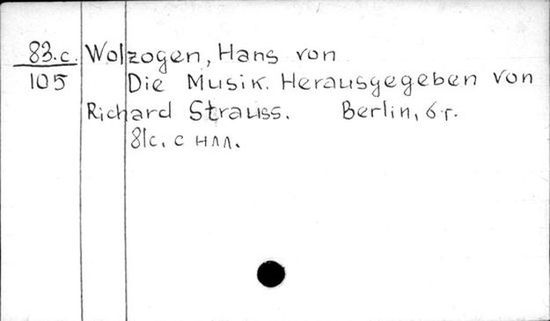 83.c. Wolzogen, Hans von
105 Die Musik. Herausgegeben von
Richard Strauss. Berlin, б.г.
81с. с илл.